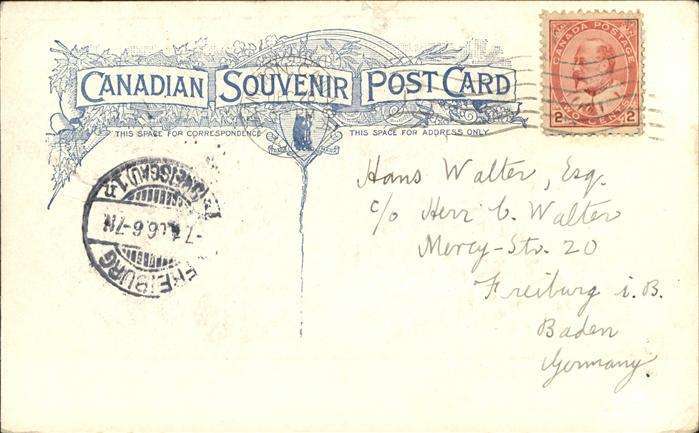 CANADIAN SOUVENIR POST CARD
THIS SPACE FOR CORRESPONDENCE
THIS SPACE FOR ADDRESS ONLY
CANADA POSTAGE
2 TWO CENTS 2
FREIBURG
(BREISGAU) 1
6-7N.
Hans Walter, Esq.
c/o Herr C. Walter
Mercy-Str. 20
Freiburg i. B.
Baden
Germany.